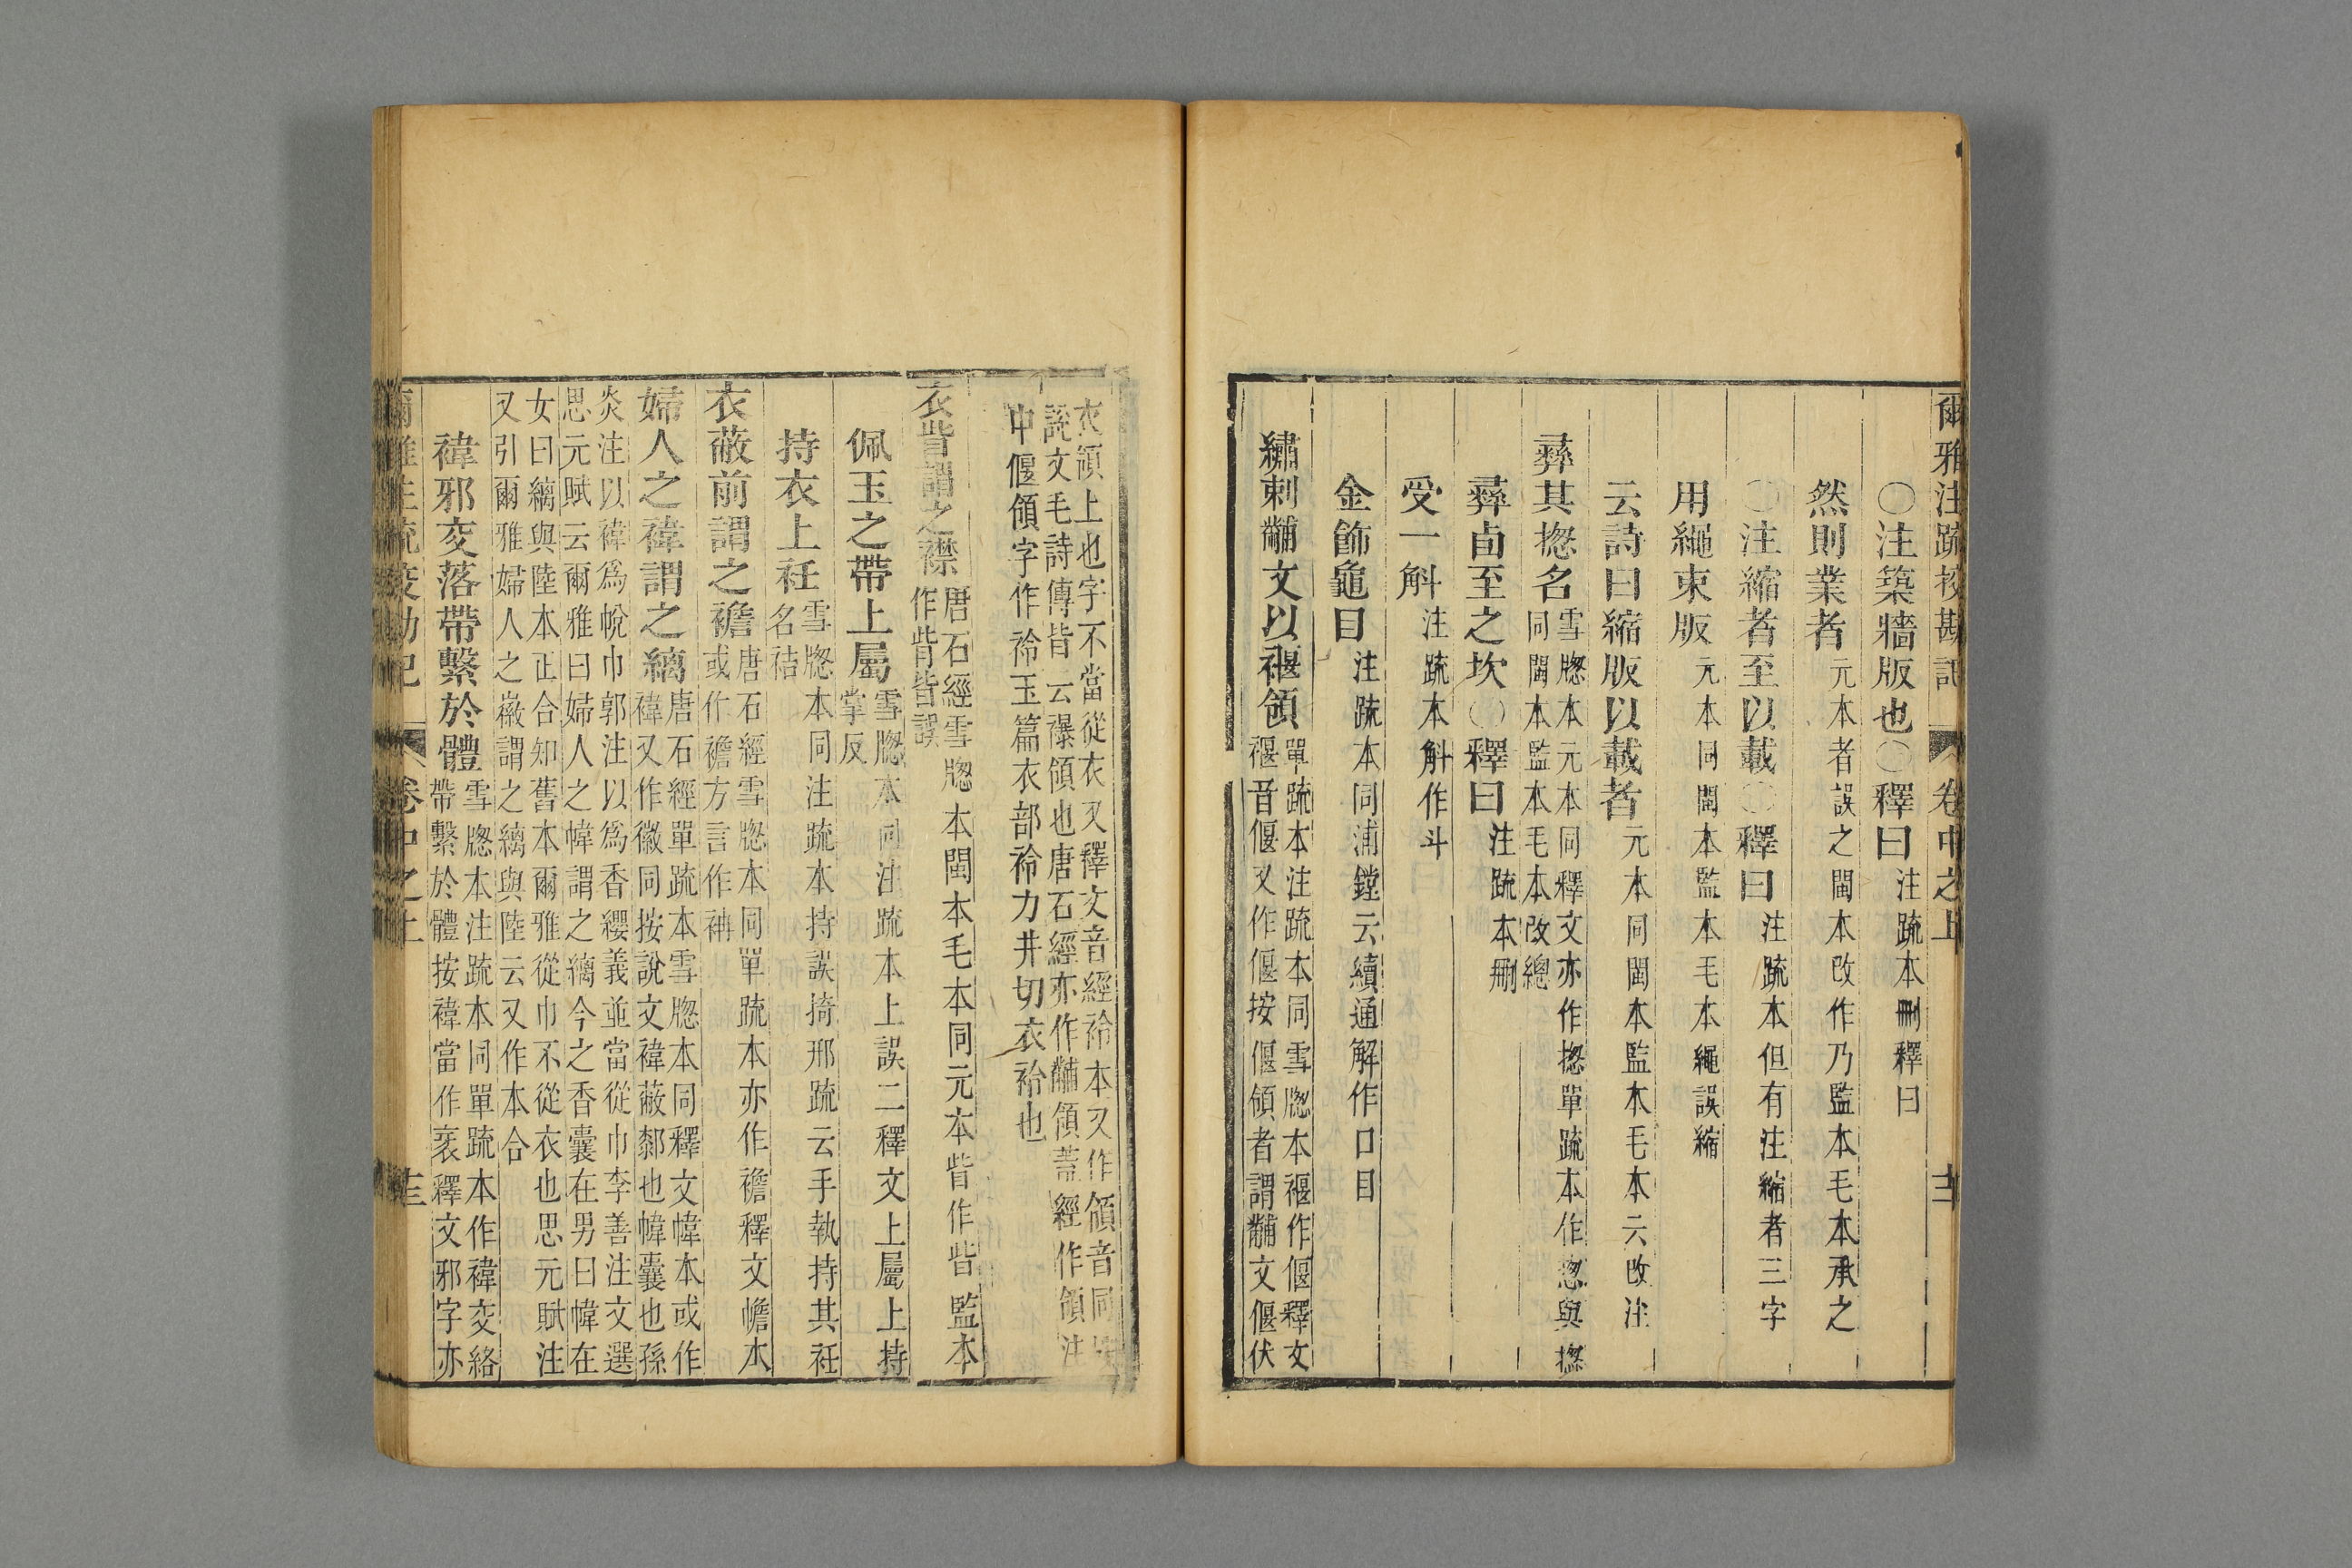 爾雅注疏挍勘記 卷中之上 十二
〇注築牆版也〇釋曰 注疏本刪釋曰
然則業者 元本者誤之閩本改作乃監本毛本承之
〇注縮者至以載〇釋曰 注疏本但有注縮者三字
用繩束版 元本同閩本監本毛本繩誤縮
云詩曰縮版以載者 元本同閩本監本毛本云改注
彝其揔名 雪牎本元本同釋文亦作揔單疏本作惣與揔
同閩本監本毛本改總
彝卣至之坎〇釋曰 注疏本刪
受一斛 注疏本斛作斗
金飾龜目 注疏本同浦鏜云續通解作口目
繡刺黼文以褗領 單疏本注疏本同雪牎本褗作偃釋文
褗音偃又作偃按偃領者謂黼文偃伏
衣領上也字不當從衣又釋文音經衿本又作領音同
說文毛詩傳皆云襮領也唐石經亦作黼領葢經作領注
中偃領字作衿玉篇衣部衿力井切衣袷也
衣眥謂之襟 唐石經雪牎本閩本毛本同元本眥作眥監本
作背皆誤
佩玉之帶上屬 雪牎本同注疏本上誤二釋文上屬上持
掌反
持衣上衽 雪牎本同注疏本持誤掎邢疏云手執持其衽
名袺
衣蔽前謂之襜 唐石經雪牎本同單疏本亦作襜釋文幨本
或作襜方言作袡
婦人之褘謂之縭 唐石經單疏本雪牎本同釋文幃本或作
褘又作徽同按說文褘蔽厀也幃囊也孫
炎注以褘爲帨巾郭注以爲香纓義並當從巾李善注文選
思元賦云爾雅曰婦人之幃謂之縭今之香囊在男曰幃在
女曰縭與陸本正合知舊本爾雅從巾不從衣也思元賦注
又引爾雅婦人之徽謂之縭與陸云又作本合
褘邪交落帶繫於體 雪牎本注疏本同單疏本作褘交絡
帶繫於體按褘當作衺釋文邪字亦
爾雅注疏挍勘記 卷中之上 十三